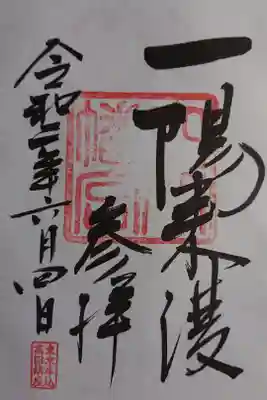 一陽来復
参拝
令和二年六月四日